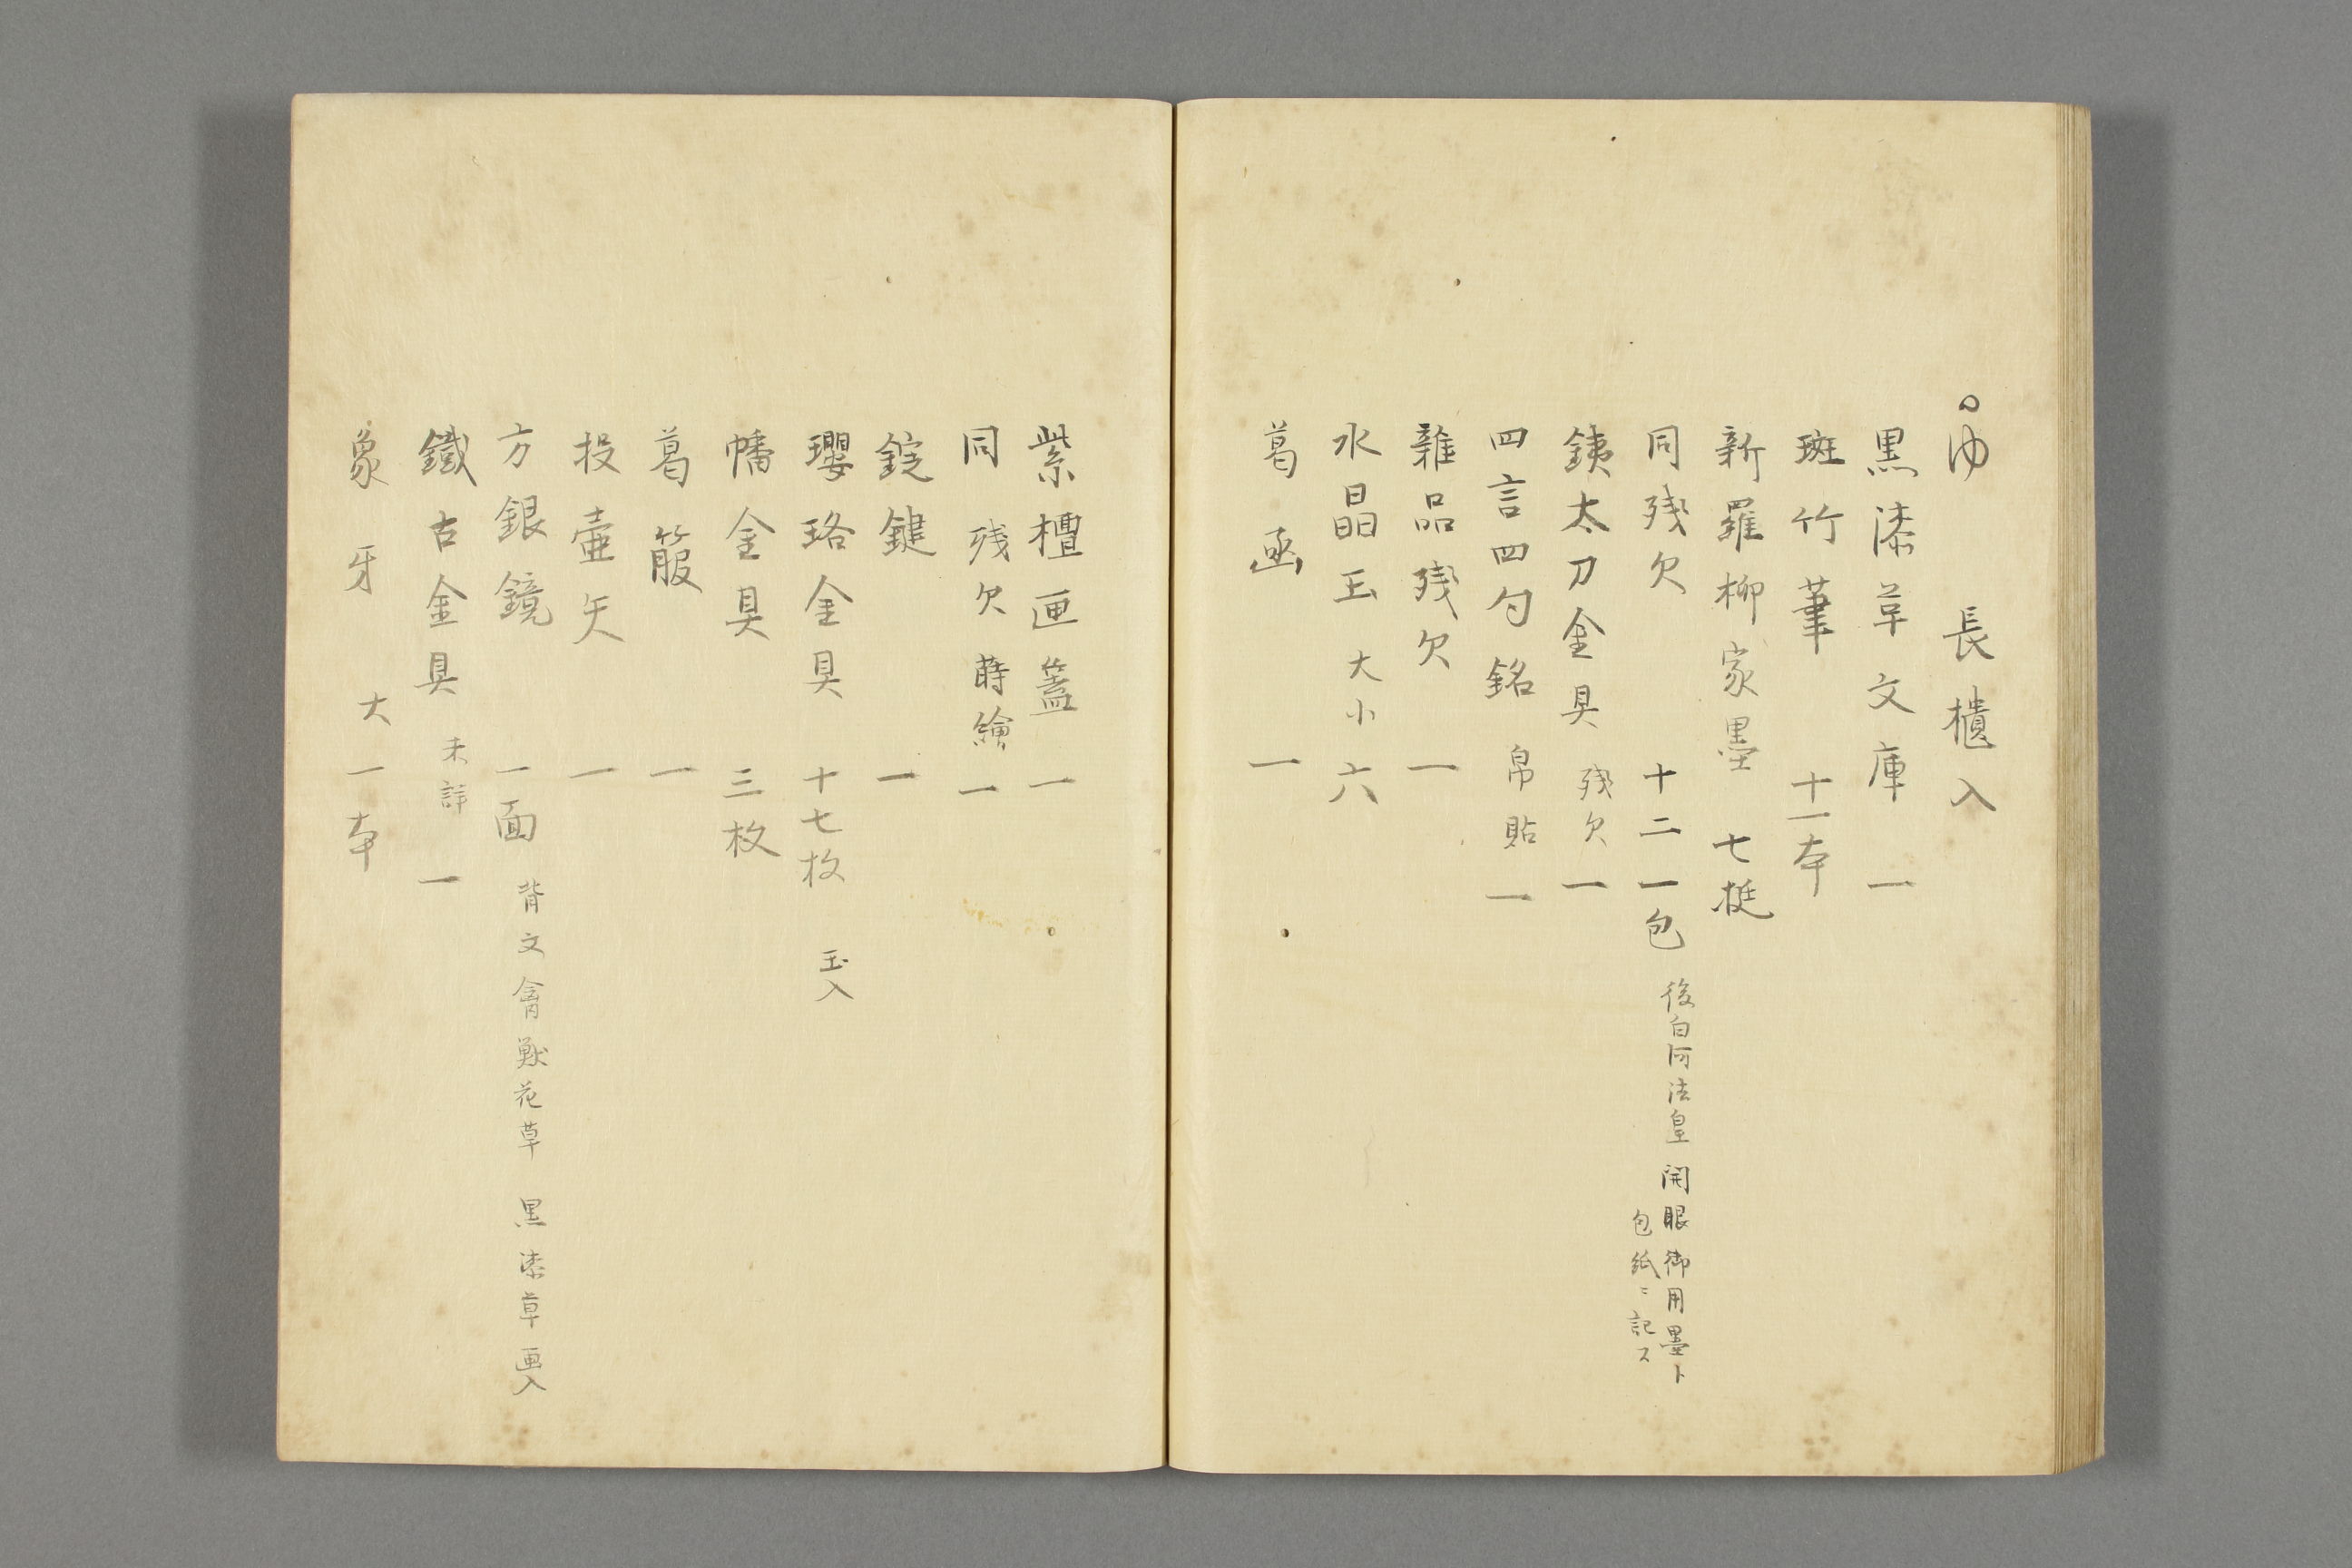 ゆ 長櫃入
黒漆草文庫 一
斑竹筆 十一本
新羅柳家墨 七挺
同残欠 十二 一包 後白河法皇開眼御用墨ト
包紙ニ記ス
銕太刀金具 残欠 一
四言四句銘 帛貼 一
雜品残欠 一
水晶玉 大小 六
葛函 一
紫檀匣蓋 一
同残欠 蒔繪 一
錠鍵 一
瓔珞金具 十七枚 玉入
幡金具 三枚
葛箙 一
投壷矢 一
方銀鏡 一面 背文禽獣花草 黒漆草匣入
鐵古金具 未詳 一
象牙 大一本